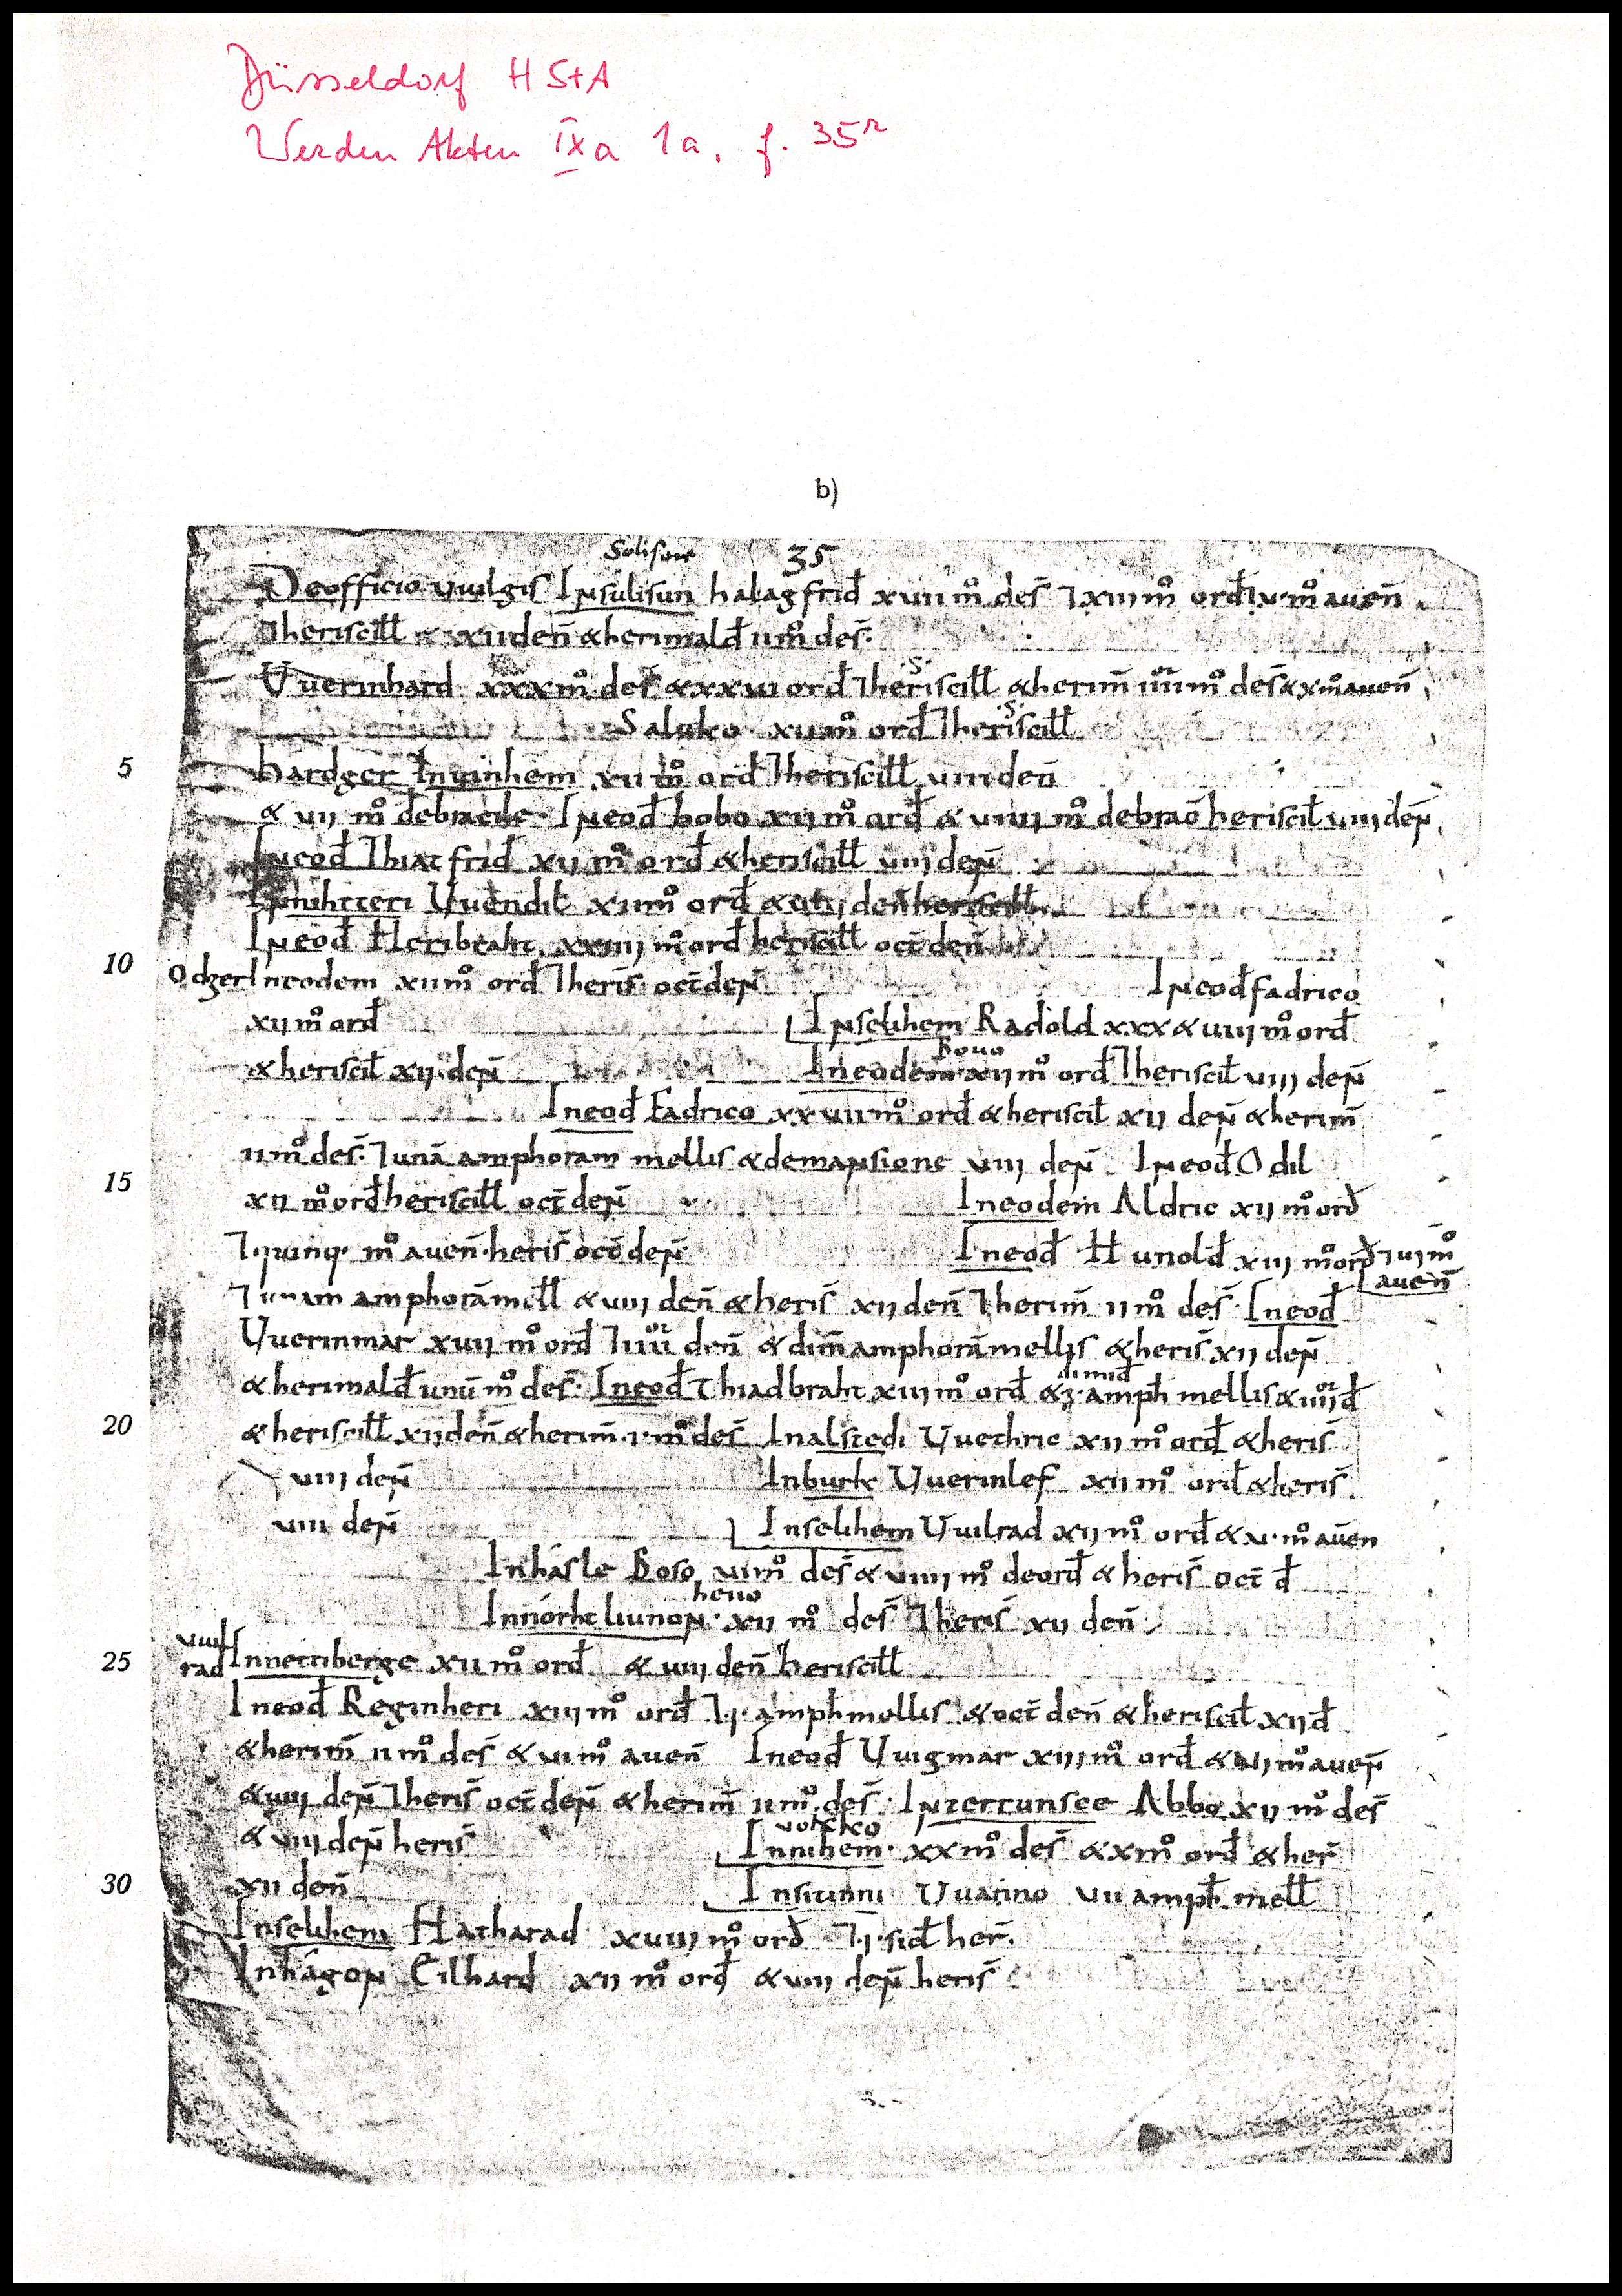 Düsseldorf HStA
Werden Akten IXa 1a. f. 35r
b)
Solison 35
De officio vuilgis Insulisun halagfrid xvii mo des ⁊ xiii mo ord ⁊ v mo auen
⁊ heriscill & xii den & herimald ii mo des.
Vuerinhard xxx mo des & xxx vi ord ⁊ heriscill & herim iiii mo des & x mo auen
.s. .s.
Saluko xii mo ord ⁊ heriscill
5 hardger Inuinhem xii mo ord ⁊ heriscill viii den
& vii mo debracile. Ineod bobo xii mo ord & viiii mo debrao heriscil viii den
Ineod Thiatfrid xii mo ord & heriscill viii den
Vuendil xii mo ord & viii den heriscill
Ineod Heribraht xxiiii mo ord heriscill oct den
10 Odger Ineodem xii mo ord ⁊ heris oct den Ineod fadrico
xii mo ord Inselihem Radold xxx & viiii mo ord
Bouo
& heriscil xii den Ineodem xii mo ord ⁊ heriscil viii den
Ineod Fadrico xx viii mo ord & heriscil xii den & herim
ii mo des. ⁊ unā amphoram mellis & demansione viii den Ineod Odil
15 xii mo ord heriscill oct den Ineodem Aldric xii mo ord
⁊ quinq. mo auen. heris oct den Ineod Hunold xiii mo ord ⁊ vi mo
auen
⁊ unam amphorā mell & viii den & heris xii den ⁊ herim ii mo des. Ineod
Vuerinmar xvii mo ord ⁊ iiii den & dim amphorā mellis & heris xii den
dimid
& herimald unū mo des. Ineod Thiadbraht xiii mo ord & amph mellis & iiii d
20 & heriscill xii den & herim. i. mo des Inalstedi Vuethric xii mo ord & heris
viii den Inburk Vuerinlef xii mo ord & heris
viii den Inselihem Vuilrad xii mo ord & v. mo auen
Inhasle Boso vi mo des & viiii mo deord & heris oct d
heuo
Innorht liunon. xii mo des ⁊ heris xii den
vuil
25 rad Innettiberge xii mo ord & viii den heriscill
Ineod Reginheri xiii mo ord ⁊ .i. amph mellis & oct den & heriscil xii d
& herim ii mo des & vi mo auen Ineod Vuigmar xiii mo ord & vi mo auen
& viii den ⁊ heris oct den & herim ii mo des. Intettunsee Abbo xii mo des
vokko
& viii den heris Innihem. xx mo des & x mo ord & her
30 xii den Insitinni Vuanno vii amph. mell
Inselihem Hatharad xviii mo ord ⁊ .i. sicl her.
Inhagon Eilhard xii mo ord & viii den heris